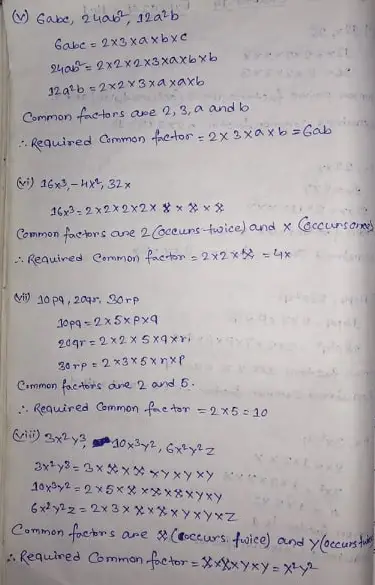 (v) 6abc, 24ab², 12a²b
6abc = 2×3×a×b×c
24ab² = 2×2×2×3×a×b×b
12a²b = 2×2×3×a×a×b
Common factors are 2, 3, a and b
∴ Required Common factor = 2×3×a×b = 6ab
(vi) 16x³, -4x², 32x
16x³ = 2×2×2×2× x × x × x
Common factors are 2 (occurs twice) and x (occurs once)
∴ Required Common factor = 2×2×x = 4x
(vii) 10pq, 20qr, 30rp
10pq = 2×5×p×q
20qr = 2×2×5×q×r
30rp = 2×3×5×r×p
Common factors are 2 and 5.
∴ Required Common factor = 2×5 = 10
(viii) 3x²y³, 10x³y², 6x²y²z
3x²y³ = 3×x×x×y×y×y
10x³y² = 2×5×x×x×x×y×y
6x²y²z = 2×3×x×x×y×y×z
Common factors are x (occurs twice) and y (occurs twice)
∴ Required Common factor = x×x×y×y = x²y²